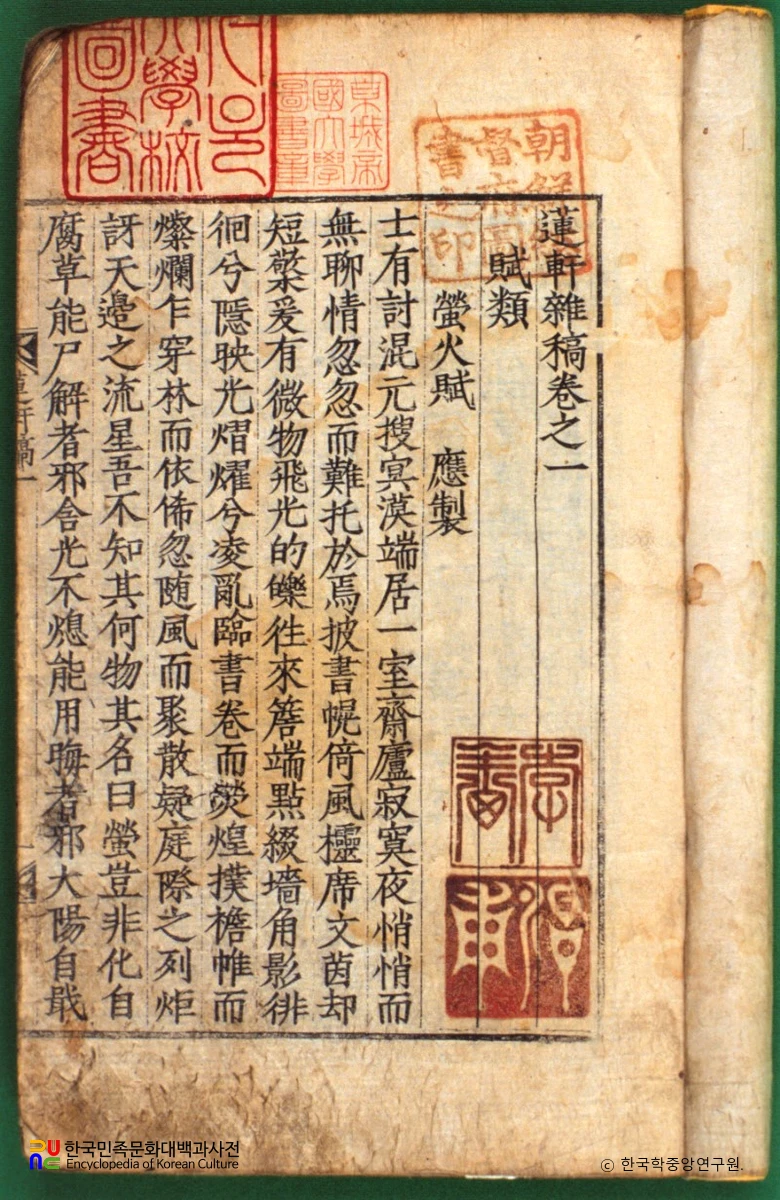 蓮軒雜稿卷之一
賦類
螢火賦 應製
士有討混元搜冥漠端居一室齋廬寂寞夜悄悄而
無聊情忽忽而難托於焉披書幌倚風櫺席文茵却
短檠爰有微物飛光的皪徃來簷端點綴墻角影徘
徊兮隱映光熠燿兮凌亂臨書卷而熒煌撲檐帷而
燦爛乍穿林而依俙忽随風而聚散疑庭際之列炬
訝天邊之流星吾不知其何物其名曰螢豈非化自
腐草能尸解者邪含光不熄能用晦者邪大陽自戢
朝鮮總
督府圖
書之印
京城帝
國大學
圖書章
大學校
圖書
한국민족문화대백과사전
Encyclopedia of Korean Culture
© 한국학중앙연구원